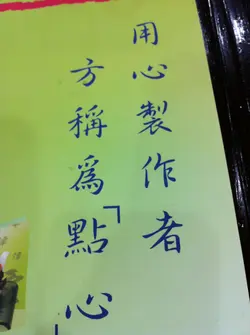 用心製作者
方稱為「點心」